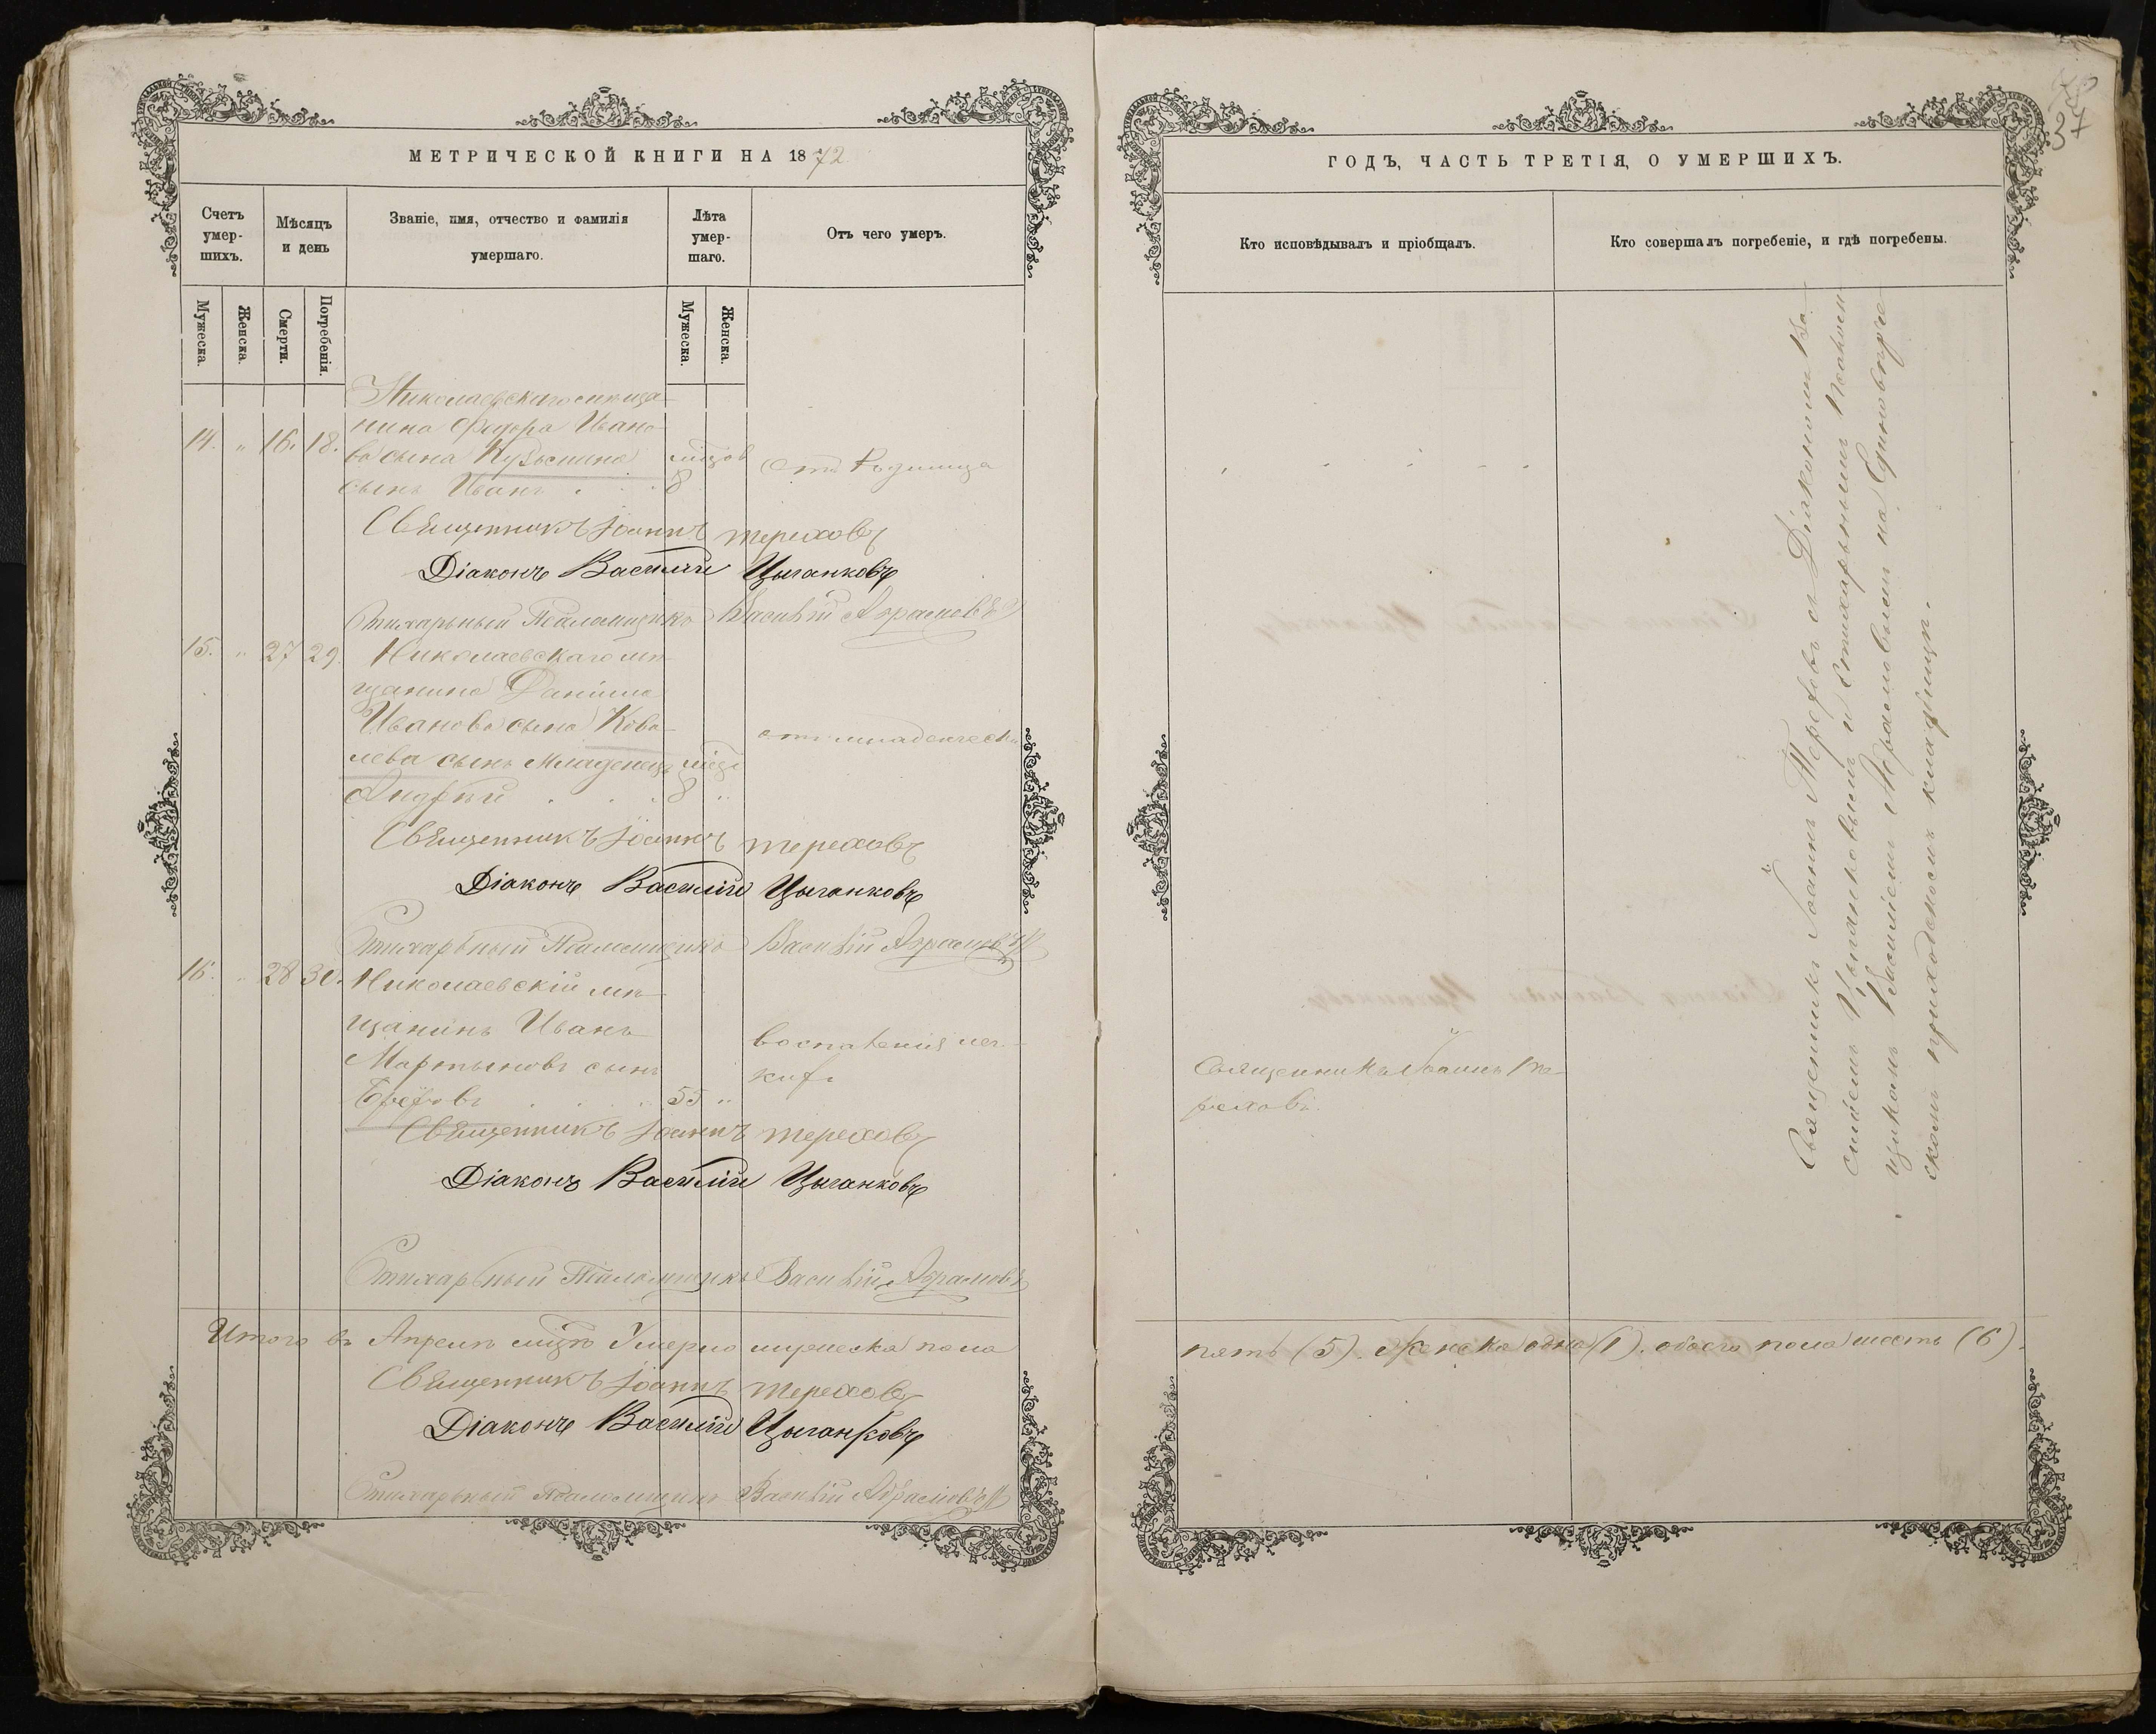 МЕТРИЧЕСКОЙ КНИГИ НА 1872
Счетъ умер-шихъ.
Мѣсяцъ и день
Званіе, имя, отчество и фамилія умершаго.
Лѣта умер-шаго.
Отъ чего умеръ.
Мужеска.
Женска.
Смерти.
Погребенія.
Мужеска.
Женска.
Николаевскаго мѣща-
14. " 16. 18. нина Федора Ивано-
ва сына Кузьмина
сынъ Иванъ 8
Отъ Родимца
Священникъ Іоаннъ Тереховъ
Діаконъ Василій Цыганковъ
Стихарный Псаломщикъ Василій Абрамовъ
15. " 27 29. Николаевскаго мѣ-
щанина Даніила
Иванова сына Кова-
лева сынъ младенецъ
Андрей 8 "
отъ младенческ
Священникъ Іоаннъ Тереховъ
Діаконъ Василій Цыганковъ
Стихарный Псаломщикъ Василій Абрамовъ
16. " 28 30. Николаевскій мѣ-
щанинъ Иванъ
Мартыновъ сынъ
55 "
воспаленія лег-
кихъ
Священникъ Іоаннъ Тереховъ
Діаконъ Василій Цыганковъ
Стихарный Псаломщикъ Василій Абрамовъ
Итого въ Апрелѣ Умерло мужеска пола
Священникъ Іоаннъ Тереховъ
Діаконъ Василій Цыганковъ
Стихарный Псаломщикъ Василій Абрамовъ
37
ГОДЪ, ЧАСТЬ ТРЕТІЯ, О УМЕРШИХЪ.
Кто исповѣдывалъ и пріобщалъ.
Кто совершалъ погребеніе, и гдѣ погребены.
Священникъ Іоаннъ Те-
реховъ.
Священникъ Іоаннъ Тереховъ съ Діакономъ Ва-
силіемъ Цыганковымъ и Стихарнымъ Псалом-
щикомъ Василіемъ Абрамовымъ на Единовѣрче-
скомъ приходскомъ кладбищѣ.
пять (5). женска одна (1). обоего пола шесть (6).